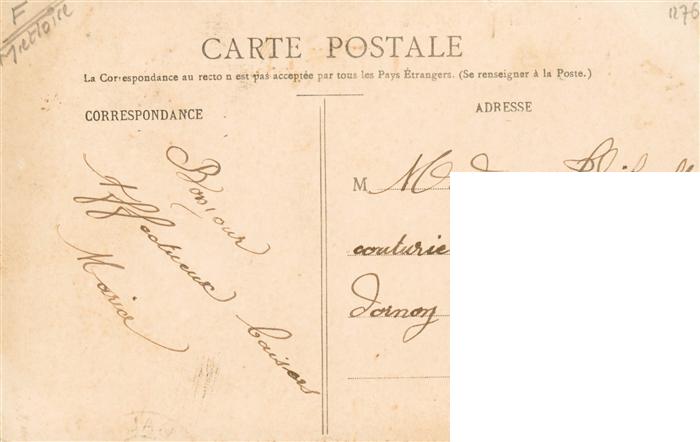 F
1276
CARTE POSTALE
La Correspondance au recto n est pas acceptée par tous les Pays Étrangers. (Se renseigner à la Poste.)
CORRESPONDANCE
ADRESSE
Bonjour
Affectueux baisers
Maria
M
couturie
Dornoy